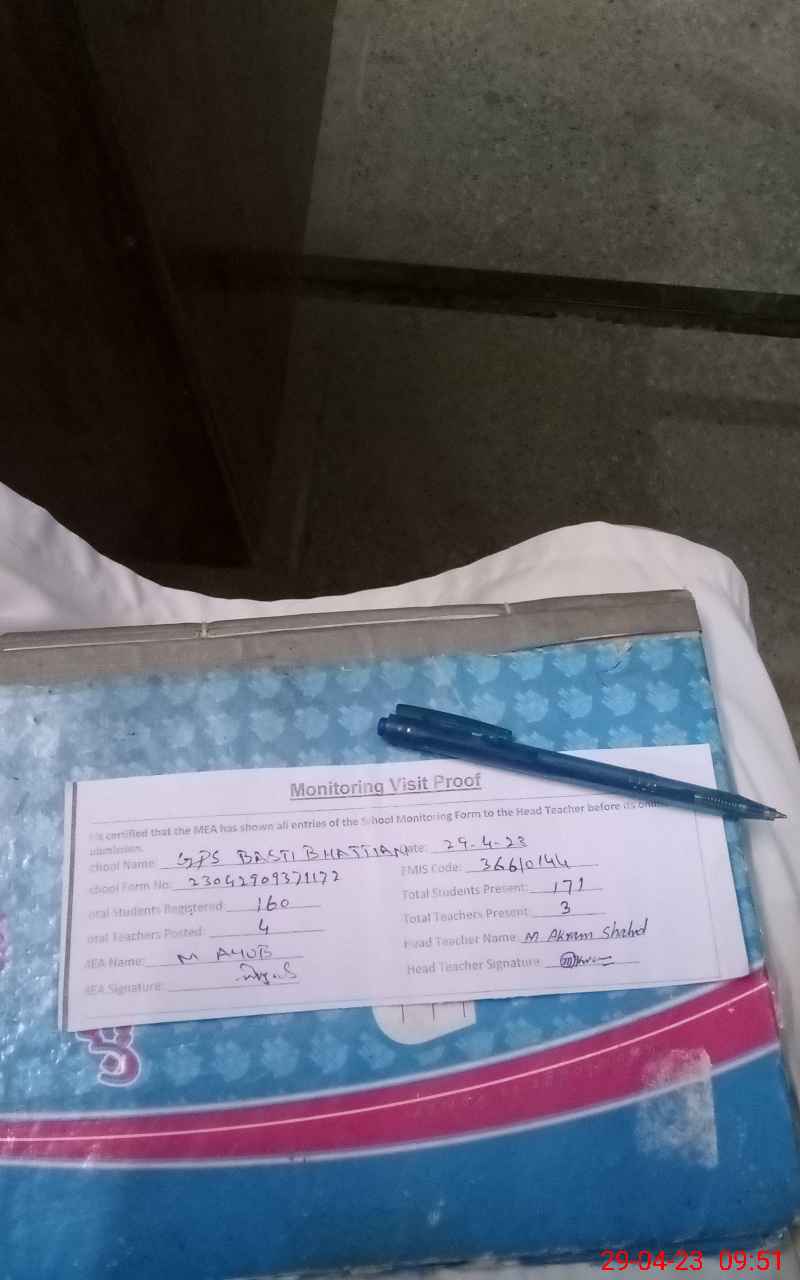 Monitoring Visit Proof
is certified that the MEA has shown all entries of the School Monitoring Form to the Head Teacher before its
chool Name: GPS BASTI BHATTIAN ate: 29-4-23
chool Form No: 23042909371172 EMIS Code: 36610144
otal Students Registered: 160 Total Students Present: 171
otal Teachers Posted: 4 Total Teachers Present: 3
MEA Name: M AYUB Head Teacher Name: M Akram Shahid
MEA Signature: Head Teacher Signature:
29-04-23 09:51